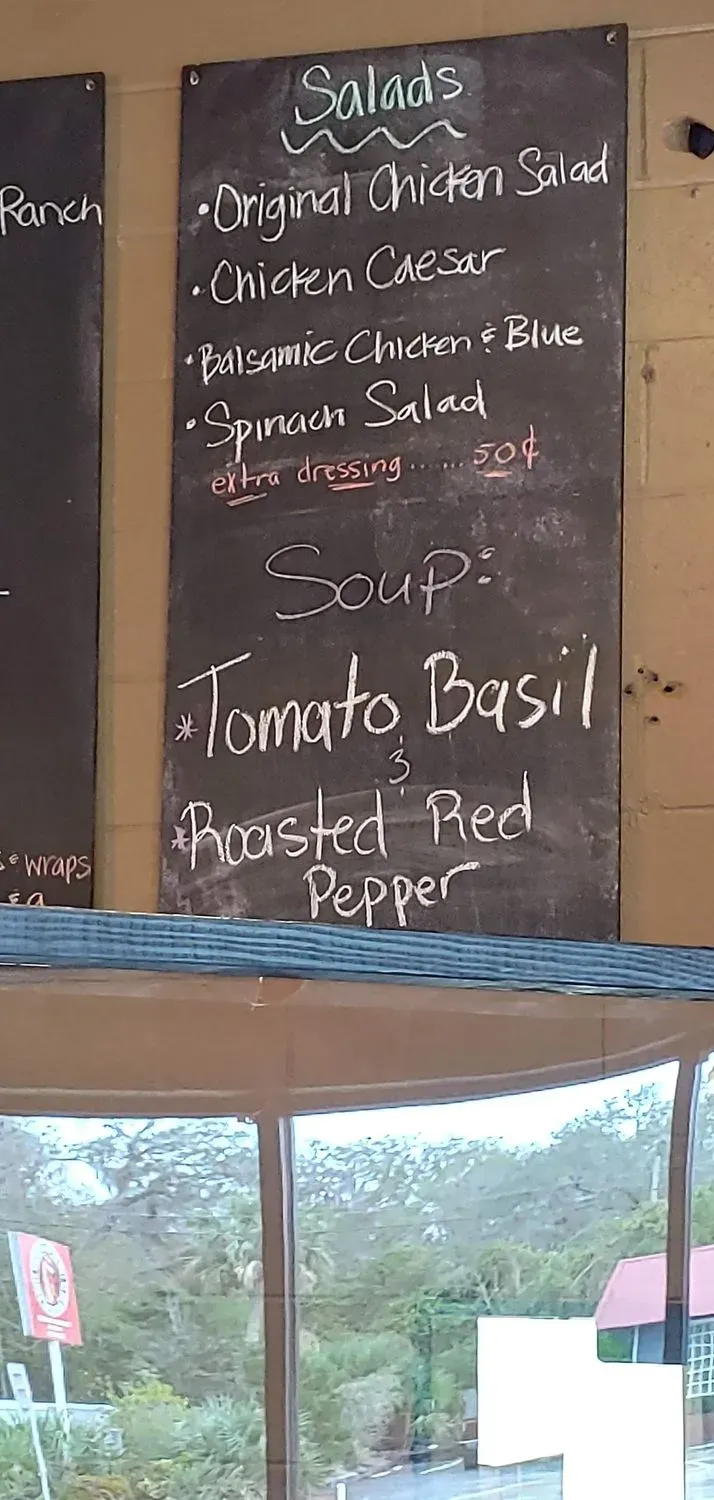 Ranch
wraps
Salads
• Original Chicken Salad
• Chicken Caesar
• Balsamic Chicken & Blue
• Spinach Salad
extra dressing ...... 50¢
Soup:
*Tomato Basil
&
*Roasted Red
Pepper